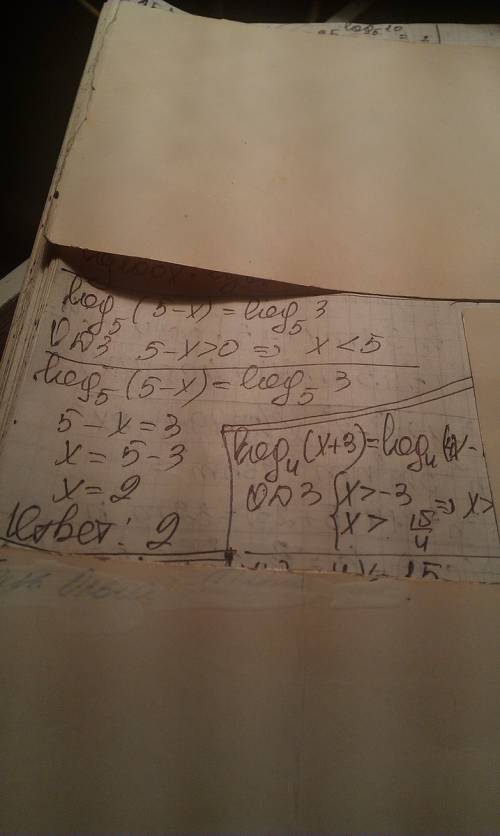 log₅(5-x)=log₅3
ОДЗ 5-x>0 => x<5
log₅(5-x)=log₅3
5-x=3
x=5-3
x=2
Ответ: 2
log₄(x+3)=log₄(4x-
ОДЗ {x>-3
{x>15/4 => x>